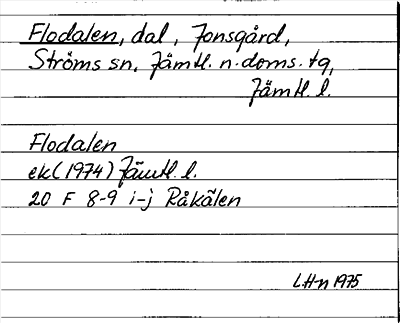 Flodalen, dal, Jonsgård,
Ströms sn, Jämtl. n. doms. tg,
Jämtl. l.
Flodalen
ek (1974) Jämtl. l.
20 F 8-9 i-j Råkälen
LH-n 1975